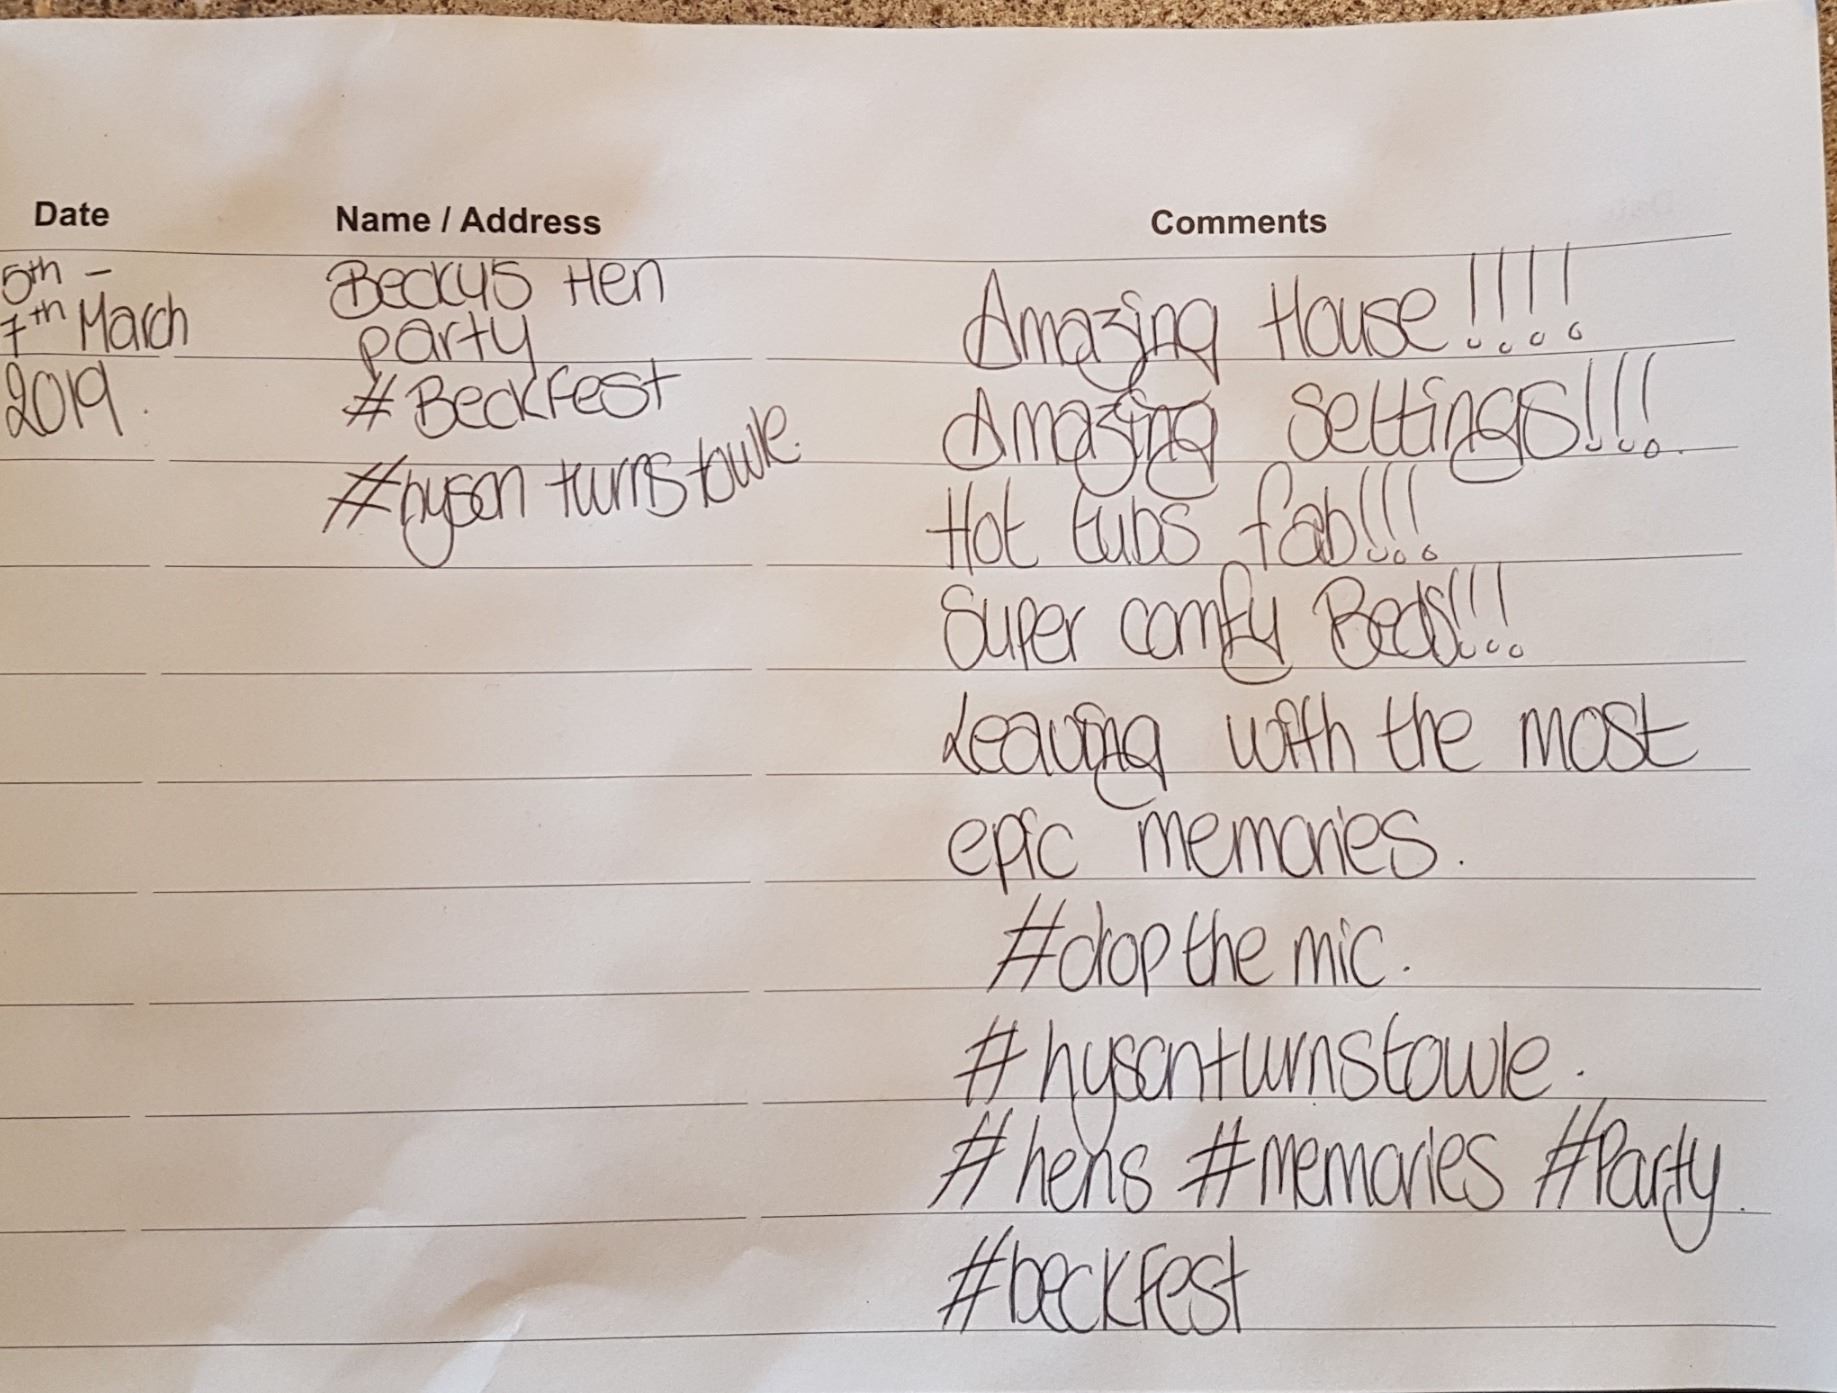 Date Name / Address Comments
5th -
7th March
2019.
Beckys Hen
party
#Beckfest
#hyson turnstowle.
Amazing House!!!!
Amazing settings!!!
Hot tubs fab!!!
Super comfy Beds!!!
Leaving with the most
epic memories.
#dropthe mic.
#hysonturnstowle.
#hens #memories #Party.
#beckfest